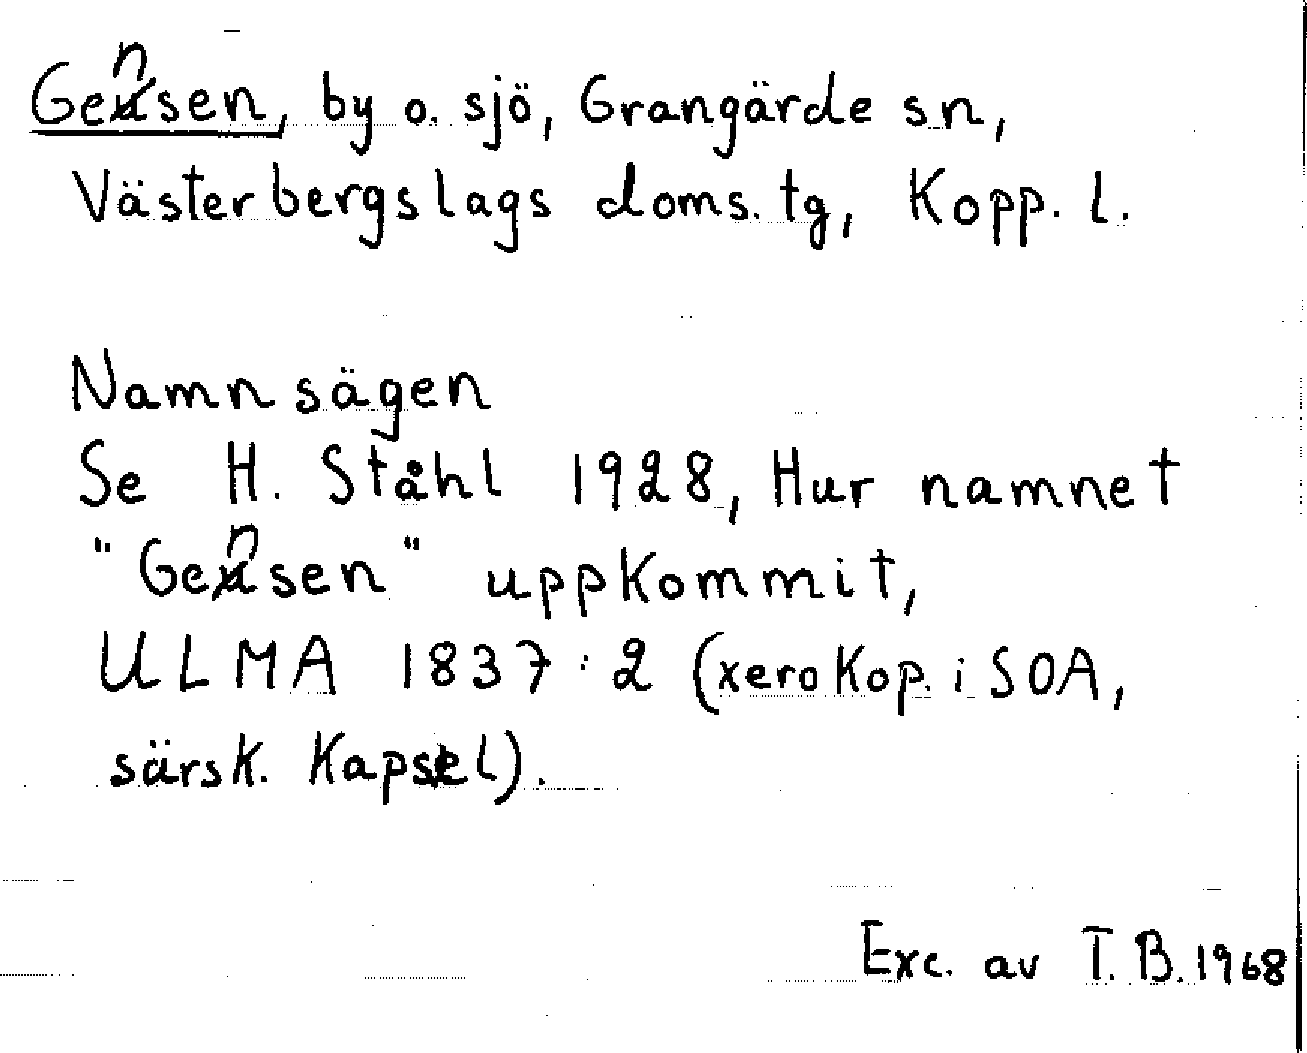 Gensen, by o. sjö, Grangärde sn,
Västerbergslags doms. tg, Kopp. l.
Namnsägen
Se H. Ståhl 1928, Hur namnet
"Gensen" uppkommit,
ULMA 1837:2 (xerokop. i SOA,
särsk. kapsel).
Exc. av T. B. 1968